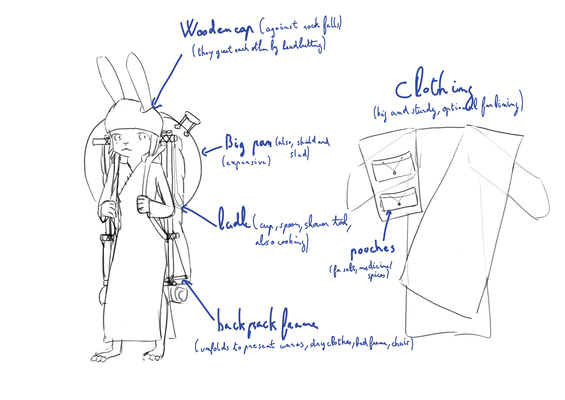 Wooden cap (against rock falls)
(they greet each other by headbutting)
Big pan (also, shield and sled)
(expensive)
ladle (cup, spoon, shower tool,
also cooking)
backpack frame
(unfolds to present wares, dry clothes, bed frame, chair)
Clothing
(big and sturdy, optional fur lining)
pouches
(for salt, medicine/
spices)